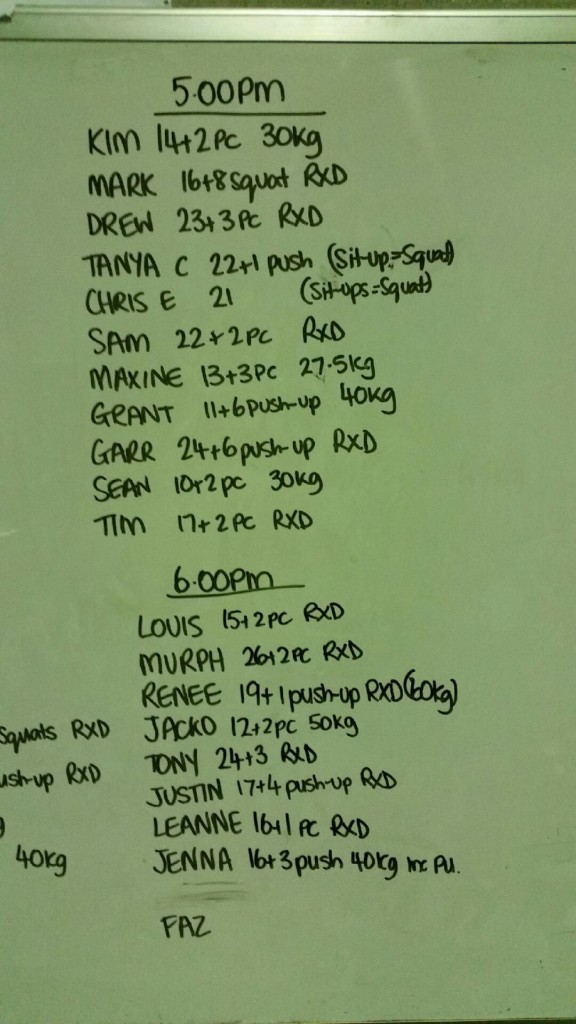 5.00PM
KIM 14+2PC 30Kg
MARK 16+8 squat RXD
DREW 23+3PC RXD
TANYA C 22+1 push (Sit-up=Squat)
CHRIS E 21 (Sit-ups=Squat)
SAM 22+2PC RXD
MAXINE 13+3PC 27.5kg
GRANT 11+6 push-up 40kg
GARR 24+6 push-up RXD
SEAN 10+2pc 30kg
TIM 17+2PC RXD
6.00Pm
LOUIS 15+2PC RXD
MURPH 26+2PC RXD
RENEE 19+1 push-up RXD(60kg)
Squats RXD JACKO 12+2pc 50kg
TONY 24+3 RXD
ush-up RXD
JUSTIN 17+4 push-up RXD
LEANNE 16+1 PC RXD
40kg JENNA 16+3 push 40kg Inc PU.
FAZ